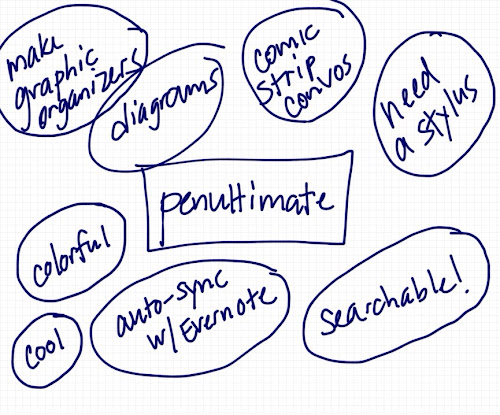 make
graphic
organizers
diagrams
comic
strip
convos
need
a stylus
penultimate
colorful
auto-sync
w/ Evernote
searchable!
cool